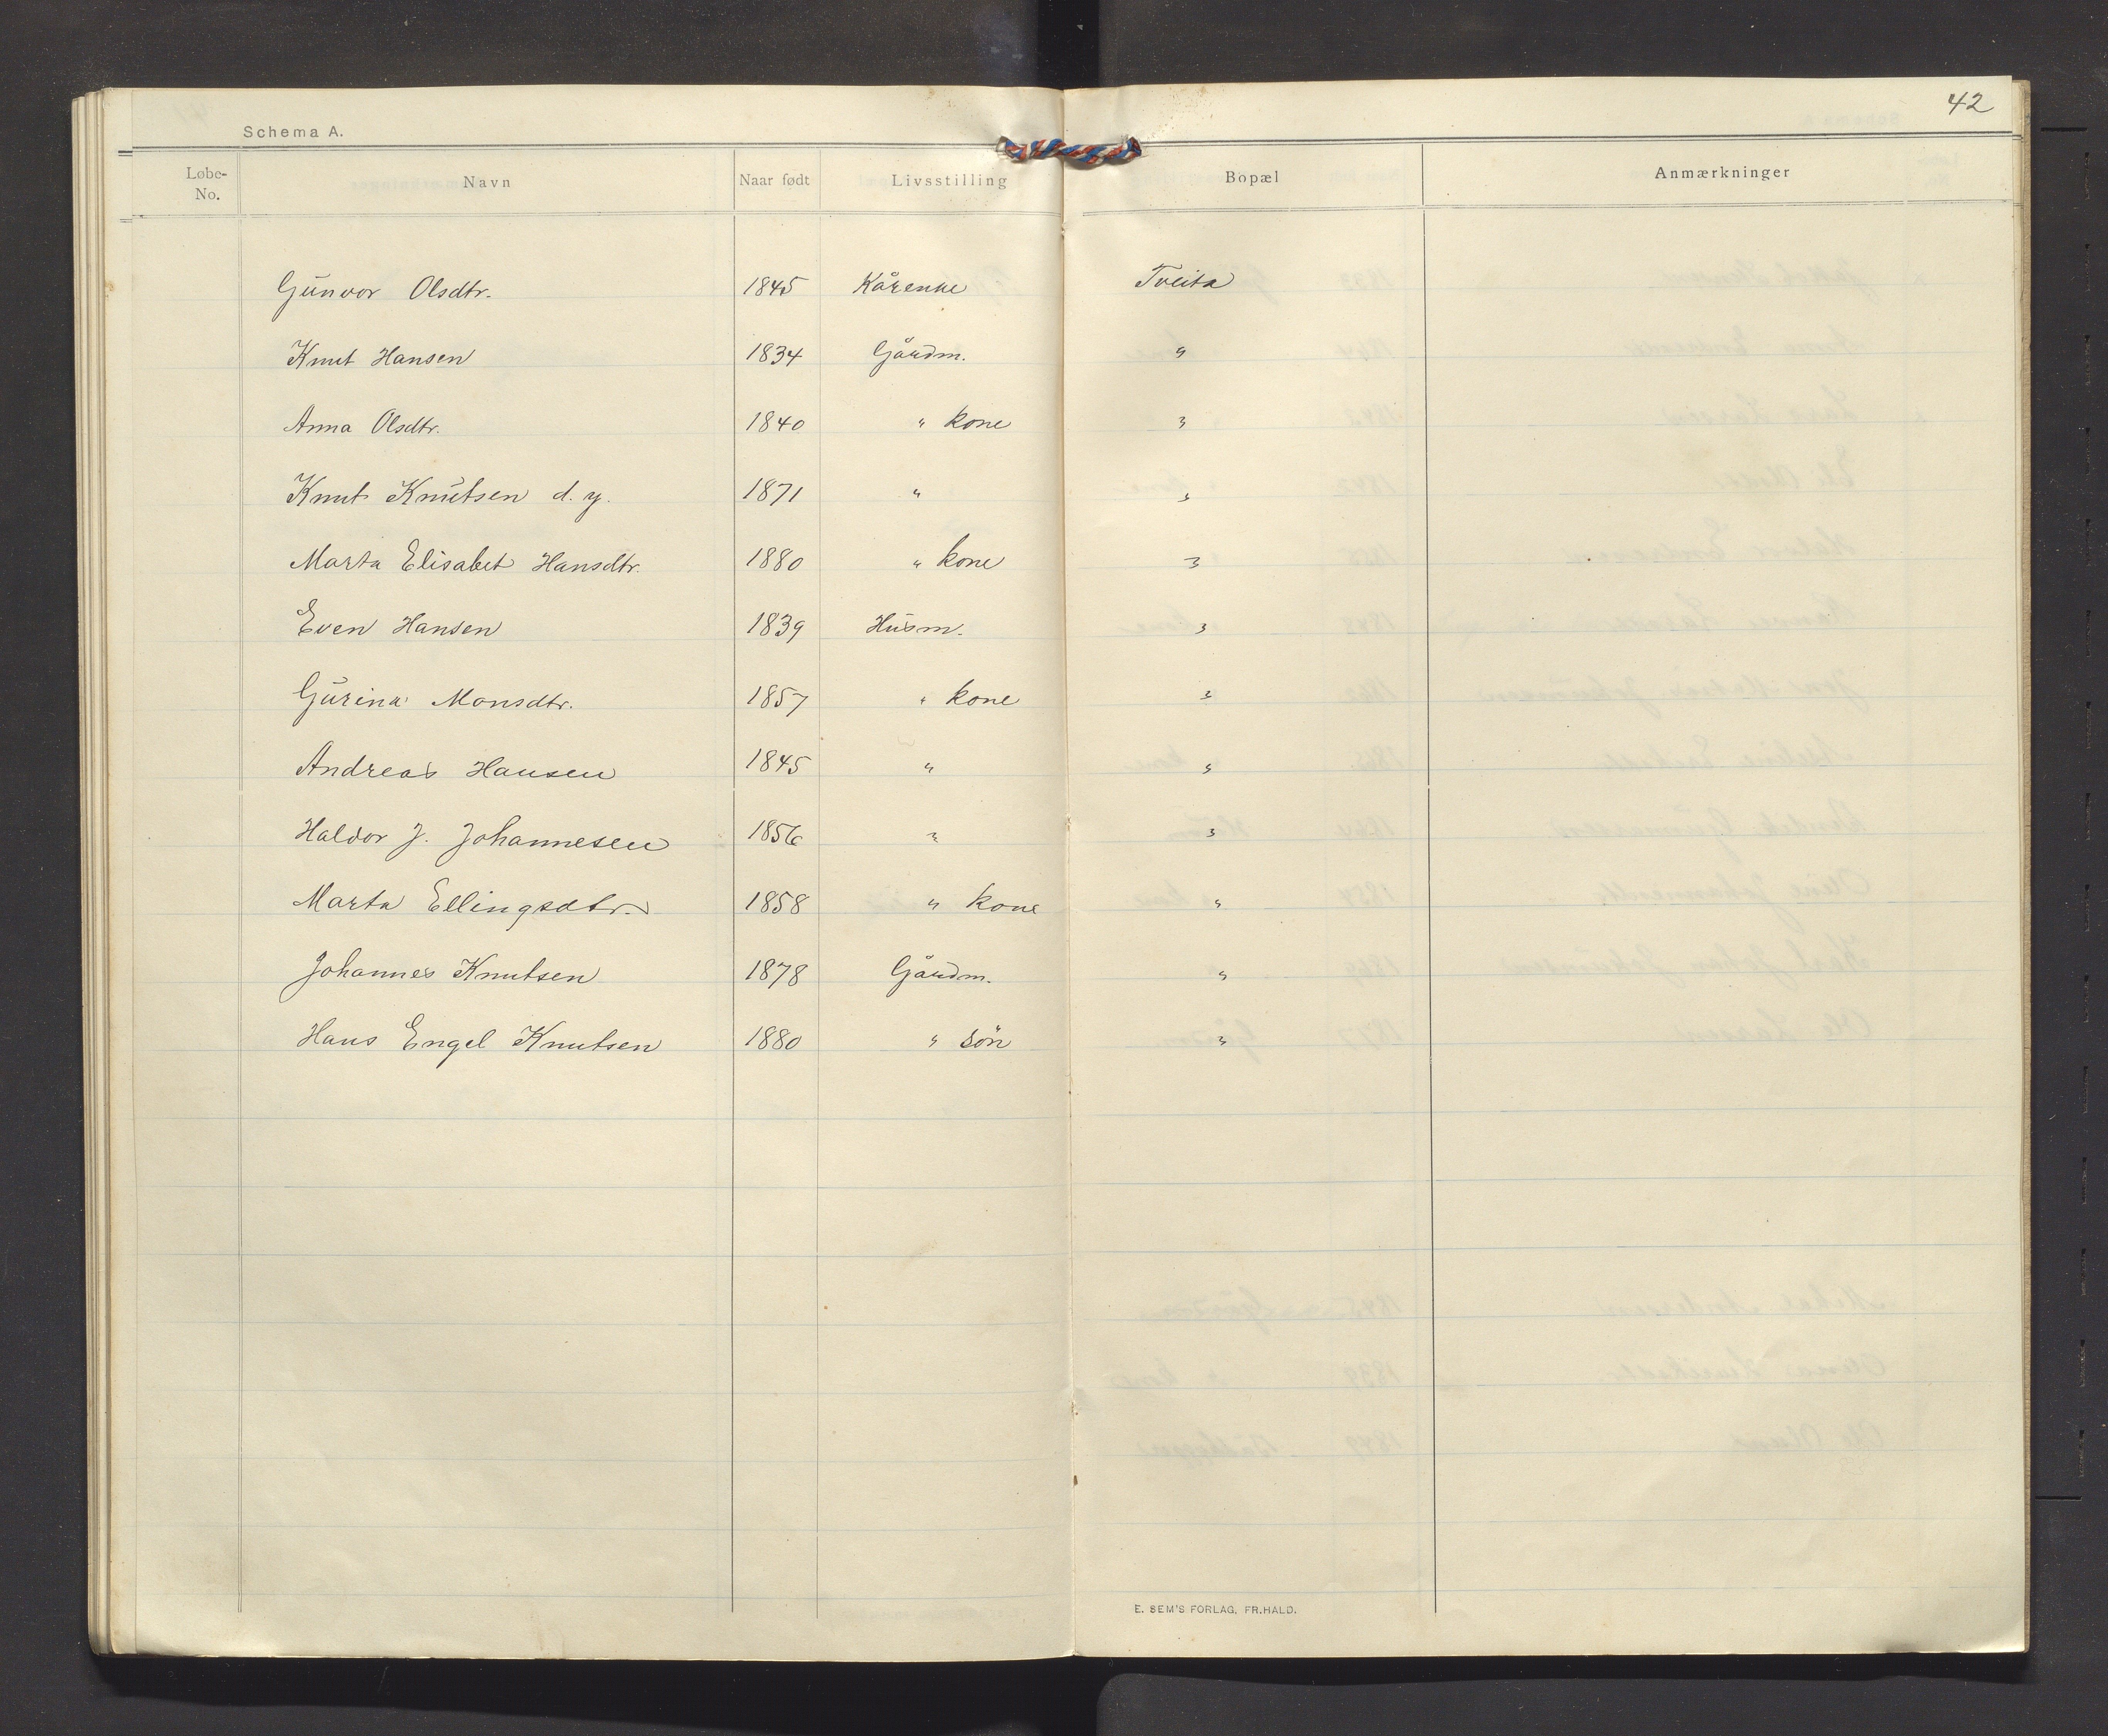 42
Schema A.
Løbe-No. Navn Naar født Livsstilling Bopæl Anmærkninger
Gunvor Olsdtr. 1845 Kårenke Tveita
Knut Hansen 1834 Gårdm. "
Anna Olsdtr. 1840 " kone "
Knut Knutsen d. y. 1871 " "
Marta Elisabet Hansdtr. 1880 " kone "
Even Hansen 1839 Husm. "
Gurina Monsdtr. 1857 " kone "
Andreas Hansen 1845 " "
Haldor J. Johannesen 1856 " "
Marta Ellingsdtr. 1858 " kone "
Johannes Knutsen 1878 Gårdm. "
Hans Engel Knutsen 1880 " sön "
E. SEM'S FORLAG, FR.HALD.